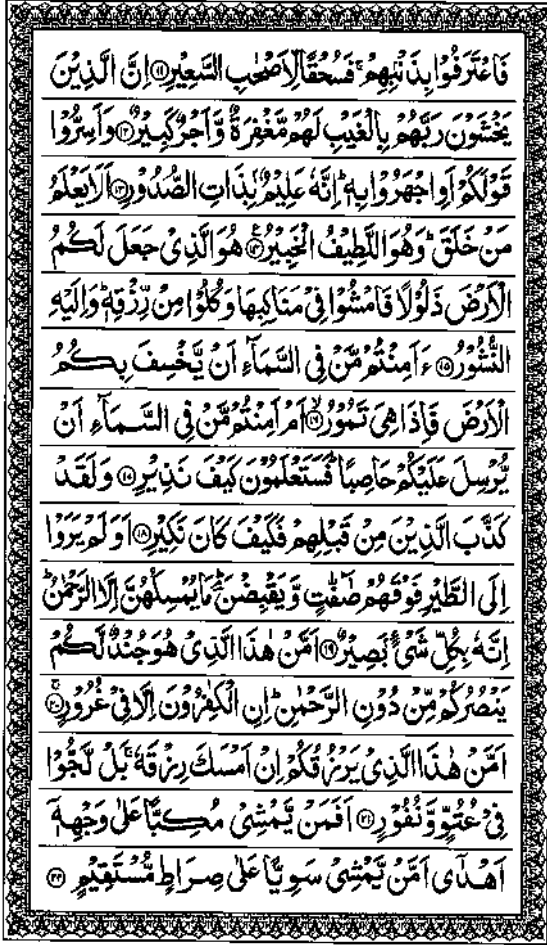 فَاعْتَرَفُوْا بِذَنْۢبِهِمْ ۚ فَسُحْقًا لِّاَصْحٰبِ السَّعِيْرِ ﴿۱۱﴾ اِنَّ الَّذِيْنَ
يَخْشَوْنَ رَبَّهُمْ بِالْغَيْبِ لَهُمْ مَّغْفِرَةٌ وَّاَجْرٌ كَبِيْرٌ ﴿۱۲﴾ وَاَسِرُّوْا
قَوْلَكُمْ اَوِ اجْهَرُوْا بِهٖ ؕ اِنَّهٗ عَلِيْمٌۢ بِذَاتِ الصُّدُوْرِ ﴿۱۳﴾ اَلَا يَعْلَمُ
مَنْ خَلَقَ ؕ وَهُوَ اللَّطِيْفُ الْخَبِيْرُ ﴿۱۴﴾ هُوَ الَّذِيْ جَعَلَ لَكُمُ
الْاَرْضَ ذَلُوْلًا فَامْشُوْا فِيْ مَنَاكِبِهَا وَكُلُوْا مِنْ رِّزْقِهٖ ؕ وَاِلَيْهِ
النُّشُوْرُ ﴿۱۵﴾ ءَاَمِنْتُمْ مَّنْ فِي السَّمَآءِ اَنْ يَّخْسِفَ بِكُمُ
الْاَرْضَ فَاِذَا هِيَ تَمُوْرُ ﴿۱۶﴾ اَمْ اَمِنْتُمْ مَّنْ فِي السَّمَآءِ اَنْ
يُّرْسِلَ عَلَيْكُمْ حَاصِبًا ؕ فَسَتَعْلَمُوْنَ كَيْفَ نَذِيْرِ ﴿۱۷﴾ وَلَقَدْ
كَذَّبَ الَّذِيْنَ مِنْ قَبْلِهِمْ فَكَيْفَ كَانَ نَكِيْرِ ﴿۱۸﴾ اَوَلَمْ يَرَوْا
اِلَى الطَّيْرِ فَوْقَهُمْ صٰٓفّٰتٍ وَّيَقْبِضْنَ ؔۘ مَا يُمْسِكُهُنَّ اِلَّا الرَّحْمٰنُ ؕ
اِنَّهٗ بِكُلِّ شَيْءٍۢ بَصِيْرٌ ﴿۱۹﴾ اَمَّنْ هٰذَا الَّذِيْ هُوَ جُنْدٌ لَّكُمْ
يَنْصُرُكُمْ مِّنْ دُوْنِ الرَّحْمٰنِ ؕ اِنِ الْكٰفِرُوْنَ اِلَّا فِيْ غُرُوْرٍ ﴿۲۰﴾
اَمَّنْ هٰذَا الَّذِيْ يَرْزُقُكُمْ اِنْ اَمْسَكَ رِزْقَهٗ ۚ بَلْ لَّجُّوْا
فِيْ عُتُوٍّ وَّنُفُوْرٍ ﴿۲۱﴾ اَفَمَنْ يَّمْشِيْ مُكِبًّا عَلٰى وَجْهِهٖٓ
اَهْدٰٓى اَمَّنْ يَّمْشِيْ سَوِيًّا عَلٰى صِرَاطٍ مُّسْتَقِيْمٍ ﴿۲۲﴾